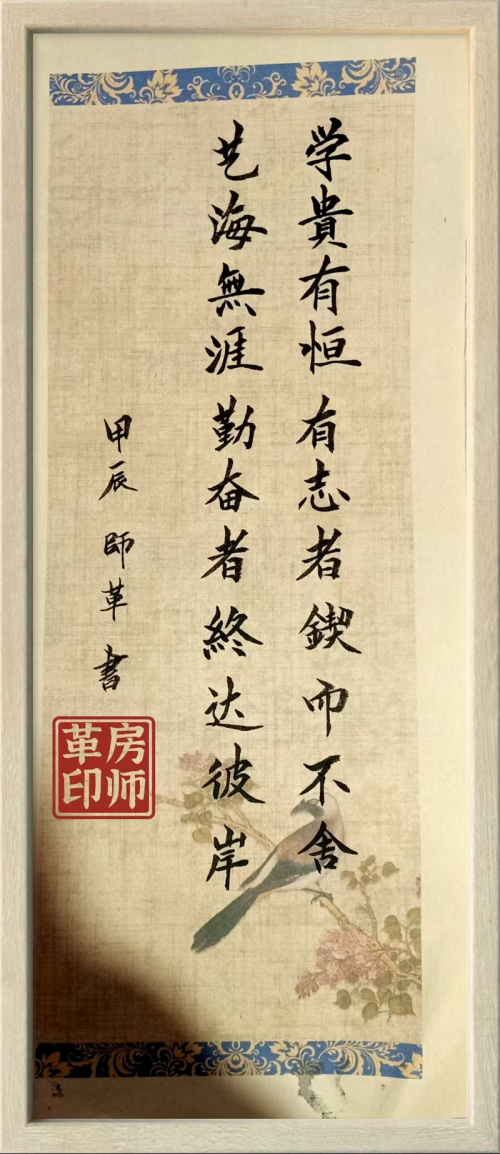 学貴有恒有志者鍥而不舍
艺海無涯勤奋者終达彼岸
甲辰師革書
房师
革印